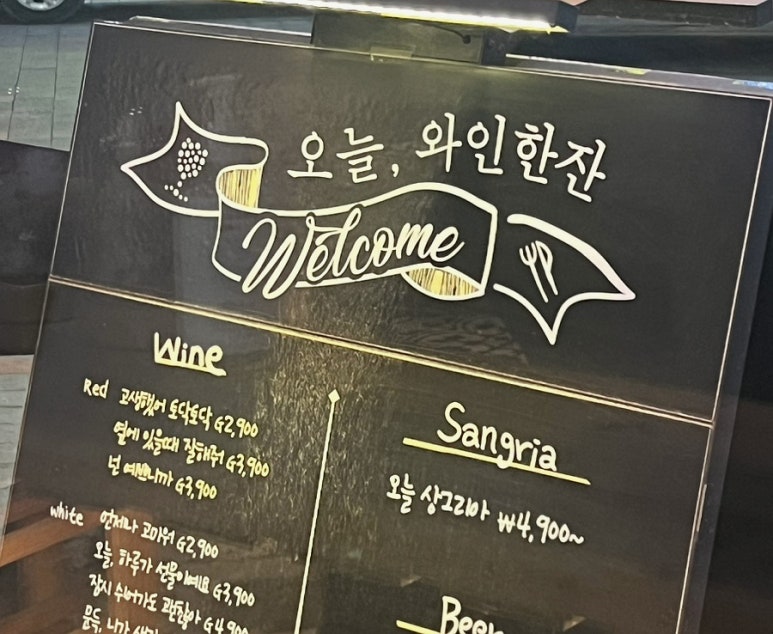 오늘, 와인한잔
Welcome
Wine
Red 고생했어 토닥토닥 G2,900
옆에 있을때 잘해줘 G3,900
넌 예쁘니까 G3,900
White 언제나 고마워 G2,900
오늘, 하루가 선물이예요 G3,900
잠시 쉬어가도 괜찮아 G4,900
문득, 니가
Sangria
오늘 상그리아 ₩4,900~
Beer